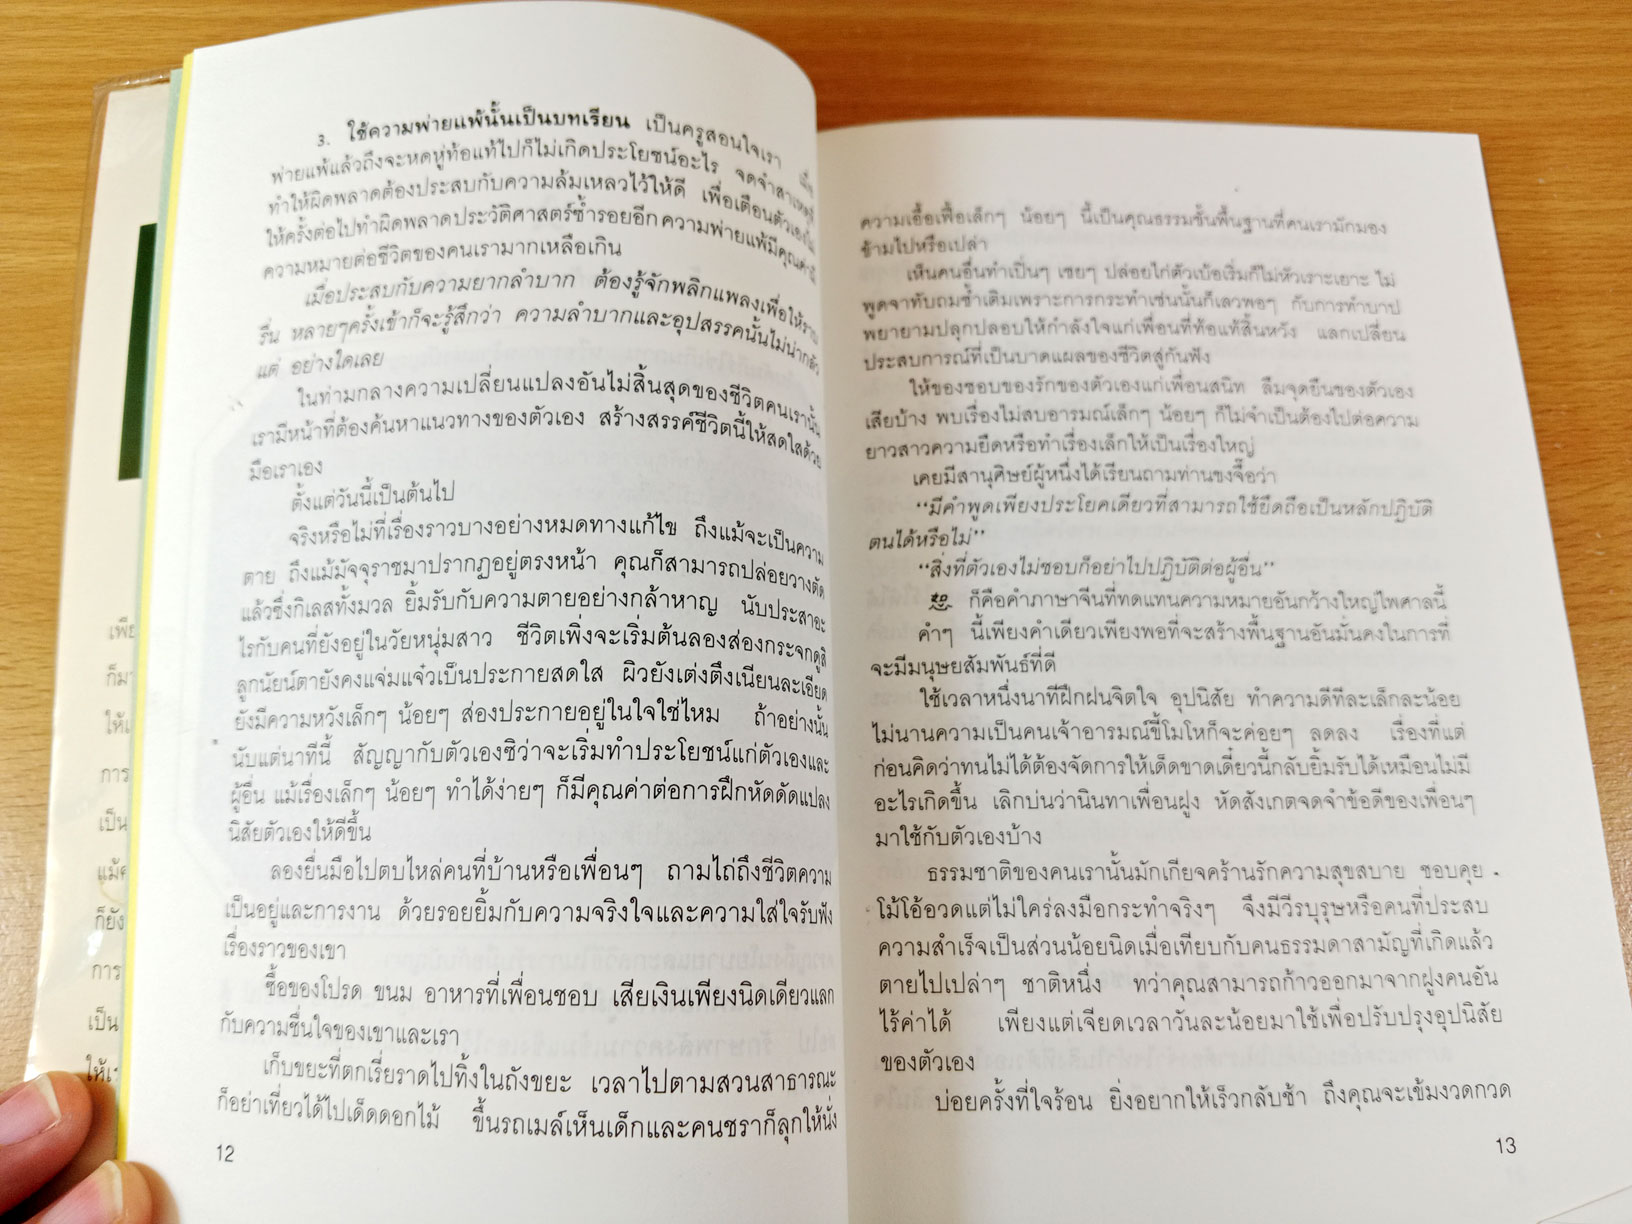 3. ใช้ความพ่ายแพ้นั้นเป็นบทเรียน เป็นครูสอนใจเรา เมื่อ
พ่ายแพ้แล้วถึงจะหดหู่ท้อแท้ไปก็ไม่เกิดประโยชน์อะไร จดจำสาเหตุที่
ทำให้ผิดพลาดต้องประสบกับความล้มเหลวไว้ให้ดี เพื่อเตือนตัวเองไม่
ให้ครั้งต่อไปทำผิดพลาดประวัติศาสตร์ซ้ำรอยอีก ความพ่ายแพ้มีคุณค่ามี
ความหมายต่อชีวิตของคนเรามากเหลือเกิน
เมื่อประสบกับความยากลำบาก ต้องรู้จักพลิกแพลงเพื่อให้ราบ
รื่น หลายๆครั้งเข้าก็จะรู้สึกว่า ความลำบากและอุปสรรคนั้นไม่น่ากลัว
แต่ อย่างใดเลย
ในท่ามกลางความเปลี่ยนแปลงอันไม่สิ้นสุดของชีวิตคนเรานั้น
เรามีหน้าที่ต้องค้นหาแนวทางของตัวเอง สร้างสรรค์ชีวิตนี้ให้สดใสด้วย
มือเราเอง
ตั้งแต่วันนี้เป็นต้นไป
จริงหรือไม่ที่เรื่องราวบางอย่างหมดทางแก้ไข ถึงแม้จะเป็นความ
ตาย ถึงแม้มัจจุราชมาปรากฏอยู่ตรงหน้า คุณก็สามารถปล่อยวางตัด
แล้วซึ่งกิเลสทั้งมวล ยิ้มรับกับความตายอย่างกล้าหาญ นับประสาอะ
ไรกับคนที่ยังอยู่ในวัยหนุ่มสาว ชีวิตเพิ่งจะเริ่มต้นลองส่องกระจกดูสิ
ลูกนัยน์ตายังคงแจ่มแจ๋วเป็นประกายสดใส ผิวยังเต่งตึงเนียนละเอียด
ยังมีความหวังเล็กๆ น้อยๆ ส่องประกายอยู่ในใจใช่ไหม ถ้าอย่างนั้น
นับแต่นาทีนี้ สัญญากับตัวเองซิว่าจะเริ่มทำประโยชน์แก่ตัวเองและ
ผู้อื่น แม้เรื่องเล็กๆ น้อยๆ ทำได้ง่ายๆ ก็มีคุณค่าต่อการฝึกหัดดัดแปลง
นิสัยตัวเองให้ดีขึ้น
ลองยื่นมือไปตบไหล่คนที่บ้านหรือเพื่อนๆ ถามไถ่ถึงชีวิตความ
เป็นอยู่และการงาน ด้วยรอยยิ้มกับความจริงใจและความใส่ใจรับฟัง
เรื่องราวของเขา
ซื้อของโปรด ขนม อาหารที่เพื่อนชอบ เสียเงินเพียงนิดเดียวแลก
กับความชื่นใจของเขาและเรา
เก็บขยะที่ตกเรี่ยราดไปทิ้งในถังขยะ เวลาไปตามสวนสาธารณะ
ก็อย่าเที่ยวได้ไปเด็ดดอกไม้ ขึ้นรถเมล์เห็นเด็กและคนชราก็ลุกให้นั่ง
12
ความเอื้อเฟื้อเล็กๆ น้อยๆ นี้เป็นคุณธรรมขั้นพื้นฐานที่คนเรามักมอง
ข้ามไปหรือเปล่า
เห็นคนอื่นทำเปิ่นๆ เชยๆ ปล่อยไก่ตัวเบ้อเริ่มก็ไม่หัวเราะเยาะ ไม่
พูดจาทับถมซ้ำเติมเพราะการกระทำเช่นนั้นก็เลวพอๆ กับการทำบาป
พยายามปลุกปลอบให้กำลังใจแก่เพื่อนที่ท้อแท้สิ้นหวัง แลกเปลี่ยน
ประสบการณ์ที่เป็นบาดแผลของชีวิตสู่กันฟัง
ให้ของชอบของรักของตัวเองแก่เพื่อนสนิท ลืมจุดยืนของตัวเอง
เสียบ้าง พบเรื่องไม่สบอารมณ์เล็กๆ น้อยๆ ก็ไม่จำเป็นต้องไปต่อความ
ยาวสาวความยืดหรือทำเรื่องเล็กให้เป็นเรื่องใหญ่
เคยมีสานุศิษย์ผู้หนึ่งได้เรียนถามท่านขงจื๊อว่า
“มีคำพูดเพียงประโยคเดียวที่สามารถใช้ยึดถือเป็นหลักปฏิบัติ
ตนได้หรือไม่”
“สิ่งที่ตัวเองไม่ชอบก็อย่าไปปฏิบัติต่อผู้อื่น”
恕 ก็คือคำภาษาจีนที่ทดแทนความหมายอันกว้างใหญ่ไพศาลนี้
คำๆ นี้เพียงคำเดียวเพียงพอที่จะสร้างพื้นฐานอันมั่นคงในการที่
จะมีมนุษยสัมพันธ์ที่ดี
ใช้เวลาหนึ่งนาทีฝึกฝนจิตใจ อุปนิสัย ทำความดีทีละเล็กละน้อย
ไม่นานความเป็นคนเจ้าอารมณ์ขี้โมโหก็จะค่อยๆ ลดลง เรื่องที่แต่
ก่อนคิดว่าทนไม่ได้ต้องจัดการให้เด็ดขาดเดี๋ยวนี้กลับยิ้มรับได้เหมือนไม่มี
อะไรเกิดขึ้น เลิกบ่นว่านินทาเพื่อนฝูง หัดสังเกตจดจำข้อดีของเพื่อนๆ
มาใช้กับตัวเองบ้าง
ธรรมชาติของคนเรานั้นมักเกียจคร้านรักความสุขสบาย ชอบคุย
โม้โอ้อวดแต่ไม่ใคร่ลงมือกระทำจริงๆ จึงมีวีรบุรุษหรือคนที่ประสบ
ความสำเร็จเป็นส่วนน้อยนิดเมื่อเทียบกับคนธรรมดาสามัญที่เกิดแล้ว
ตายไปเปล่าๆ ชาติหนึ่ง ทว่าคุณสามารถก้าวออกมาจากฝูงคนอัน
ไร้ค่าได้ เพียงแต่เจียดเวลาวันละน้อยมาใช้เพื่อปรับปรุงอุปนิสัย
ของตัวเอง
บ่อยครั้งที่ใจร้อน ยิ่งอยากให้เร็วกลับช้า ถึงคุณจะเข้มงวดกวด
13